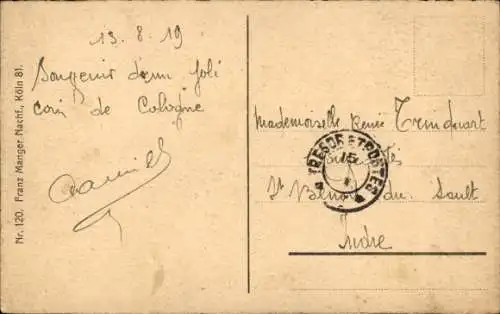 13-8-19
Souvenir d'un joli
coin de Cologne
Mademoiselle Renée Trinquart
St Benoit du Sault
Indre
TRESOR ET POSTES
15
Nr. 120. Franz Manger Nachf., Köln 81.